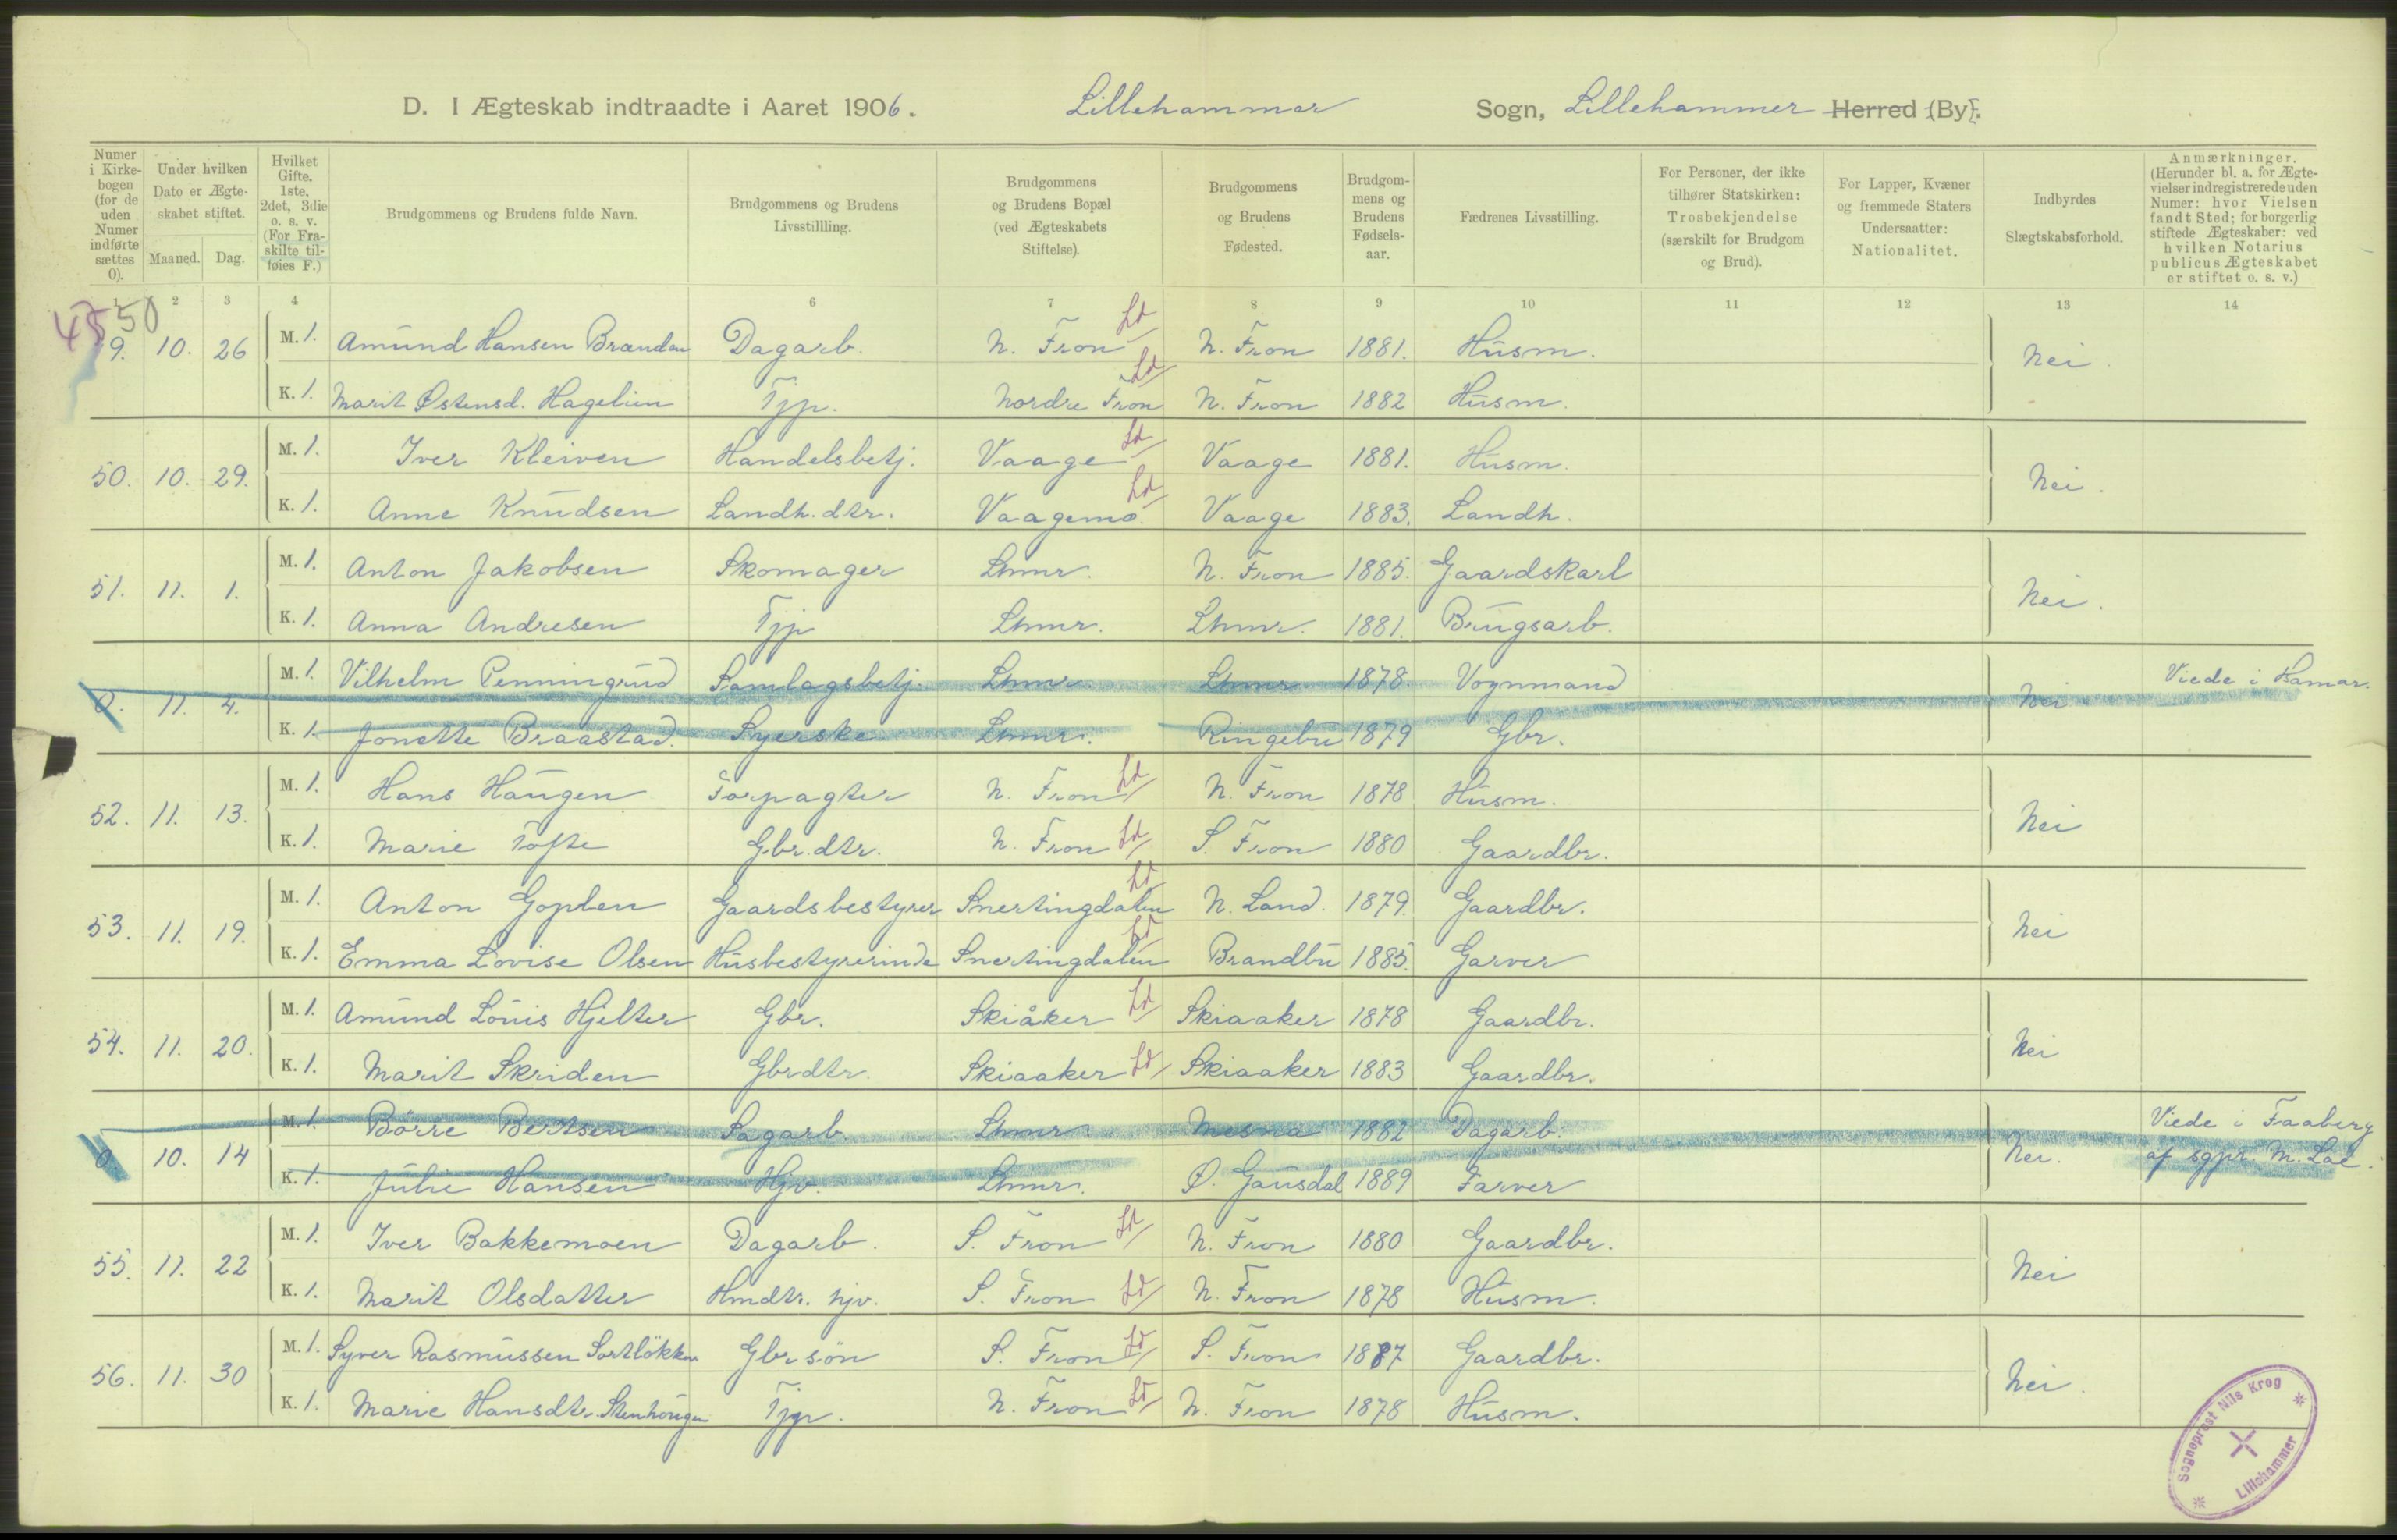 D. I Ægteskab indtraadte i Aaret 1906. Lillehammer Sogn, Lillehammer Herred (By).
Numer i Kirkebogen (for de uden Numer indførte sættes 0).
Under hvilken Dato er Ægteskabet stiftet.
Maaned. Dag.
Hvilket Gifte. 1ste, 2det, 3die o. s. v. (For Fraskilte tilføies F.)
Brudgommens og Brudens fulde Navn.
Brudgommens og Brudens Livsstillling.
Brudgommens og Brudens Bopæl (ved Ægteskabets Stiftelse).
Brudgommens og Brudens Fødested.
Brudgommens og Brudens Fødselsaar.
Fædrenes Livsstilling.
For Personer, der ikke tilhører Statskirken: Trosbekjendelse (særskilt for Brudgom og Brud).
For Lapper, Kvæner og fremmede Staters Undersaatter: Nationalitet.
Indbyrdes Slægtskabsforhold.
Anmærkninger. (Herunder bl. a. for Ægtevielser indregistrerede uden Numer: hvor Vielsen fandt Sted; for borgerlig stiftede Ægteskaber: ved hvilken Notarius publicus Ægteskabet er stiftet o. s. v.)
1 2 3 4 6 7 8 9 10 11 12 13 14
50
9. 10. 26 M. 1. Amund Hansen Brænden Dagarb. N. Fron Ld N. Fron 1881. Husm. Nei.
K. 1. Marit Østensd. Hagelien Tjp. Nordre Fron Ld N. Fron 1882 Husm.
50. 10. 29. M. 1. Iver Kleiven Handelsbetj. Vaage Ld Vaage 1881. Husm. Nei.
K. 1. Anne Knudsen Landh. dtr. Vaagemo. Ld Vaage 1883. Landh.
51. 11. 1. M. 1. Anton Jakobsen Skomager Lhmr. N. Fron 1885. Gaardskarl Nei.
K. 1. Anna Andresen Tjp Lhmr. Lhmr. 1881. Brugsarb.
0. 11. 4. M. 1. Vilhelm Penningrud Samlagsbetj. Lhmr. Lhmr 1878. Vognmand Nei Viede i Hamar.
K. 1. Jonette Braastad. Syerske Lhmr. Ringebu 1879 Gbr.
52. 11. 13. M. 1. Hans Haugen Forpagter N. Fron Ld N. Fron 1878 Husm. Nei
K. 1. Marie Tofte Gbr. dtr. N. Fron Ld S. Fron 1880 Gaardbr.
53. 11. 19. M. 1. Anton Goplen Gaardsbestyrer Snertingdalen Ld N. Land. 1879. Gaardbr. Nei
K. 1. Emma Lovise Olsen Husbestyrerinde Snertingdalen Ld Brandbu 1885. Garver
54. 11. 20. M. 1. Amund Louis Hjelter Gbr. Skiåker Ld Skiaaker 1878 Gaardbr. Nei
K. 1. Marit Skriden Gbrdtr. Skiaaker Ld Skiaaker 1883 Gaardbr.
0. 10. 14 M. 1. Börre Bertsen Sagarb. Lhmr. Mesna 1882 Dagarb. Nei. Viede i Faaberg
K. 1. Julie Hansen Hjv. Lhmr. Ø. Gausdal 1889 Farver af sgpr. M. Loe.
55. 11. 22 M. 1. Iver Bakkemoen Dagarb. S. Fron Ld N. Fron 1880 Gaardbr. Nei
K. 1. Marit Olsdatter Hmdtr. hjv. S. Fron Ld N. Fron 1878 Husm.
56. 11. 30 M. 1. Syver Rasmussen Sortlökken Gbrsön S. Fron Ld S. Fron 1887 Gaardbr. Nei.
K. 1. Marie Hansdtr. Stenhougen Tjp. N. Fron Ld N. Fron 1878 Husm.
Sogneprest Nils Krog
Lillehammer